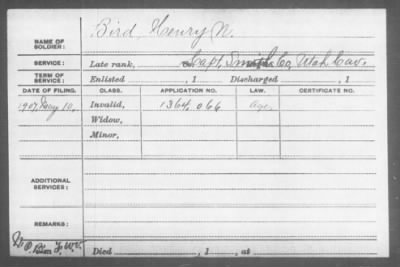 Bird, Henry N.
NAME OF
SOLDIER:
SERVICE: Late rank, Capt. Smith Co, Utah Cav.
TERM OF
SERVICE: Enlisted , 1 Discharged , 1
DATE OF FILING. CLASS. APPLICATION NO. LAW. CERTIFICATE NO.
1907, May 10, Invalid, 1364,066 Age
Widow,
Minor,
ADDITIONAL
SERVICES:
REMARKS:
Died , 1 , at